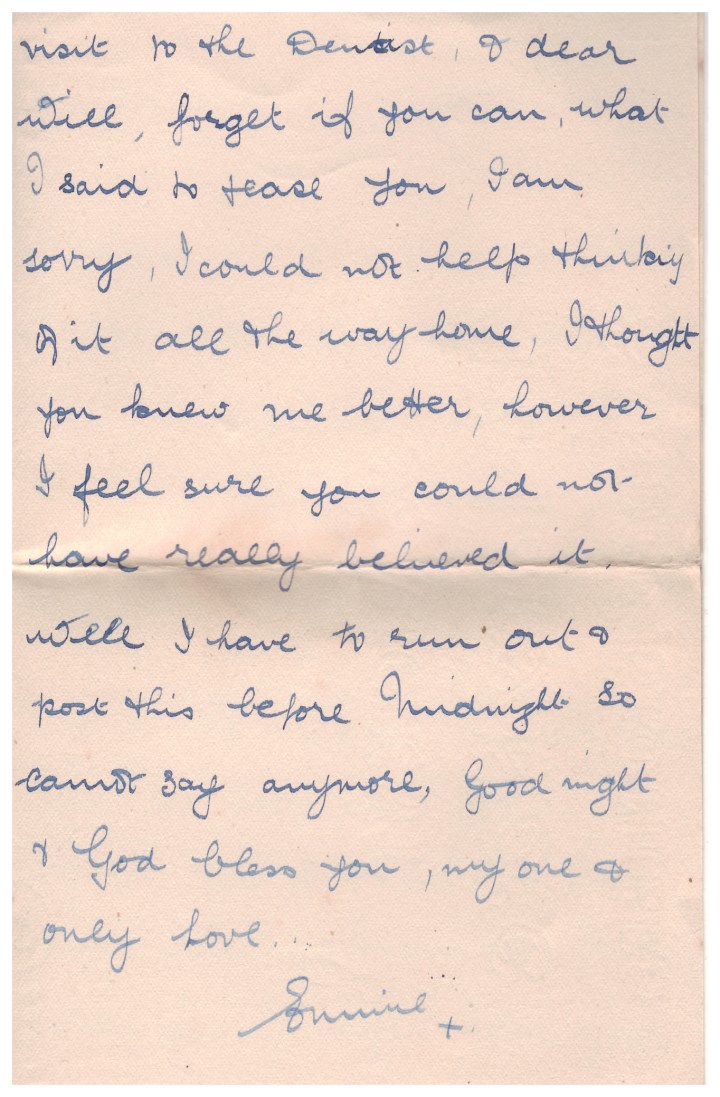 visit to the Dentist, & dear
Will, forget if you can, what
I said to tease you, I am
sorry, I could not help thinking
of it all the way home, I thought
you knew me better, however
I feel sure you could not
have really believed it.
Well I have to run out &
post this before Midnight so
cannot say anymore, Good night
& God bless you, my one &
only love.
Emmie +